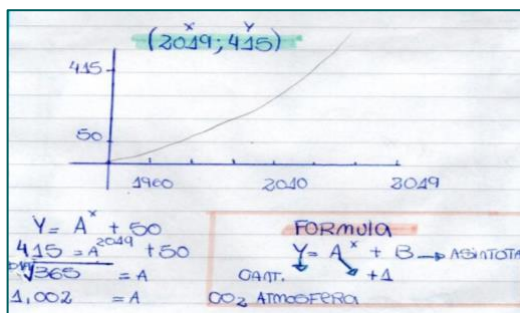 x y
(2019; 415)
415
50
1900 2010 2019
Y = A^x + 50
415 = A^2019 + 50
2019√365 = A
1,002 = A
FORMULA
Y = A^x + B → ASINTOTA
CANT. +1
CO2 ATMOSFERA